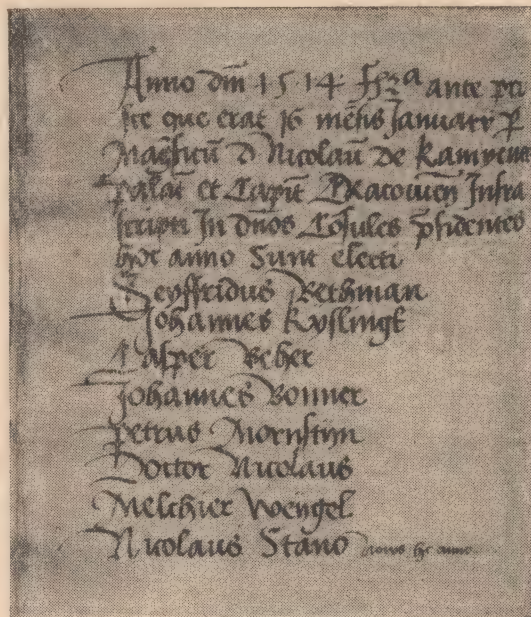 Anno dm̄ 1514 fr̄ia ante pri
sce que erat 16 mēsis January p̄
Mag̃ficū d Nicolaū de Kamyenec
palat̄ et Capit̄ Cracovieñ Infra
scripti In dños Cōsules p̄sidentes
hoc anno Sunt electi
Seyffridus Bethman
Johannes Kyslingk
Casper Beher
Johannes Bonner
petrus Mornstyn
Doctor Nicolaus
Melchier Weygel
Nicolaus Stano novus hc anno